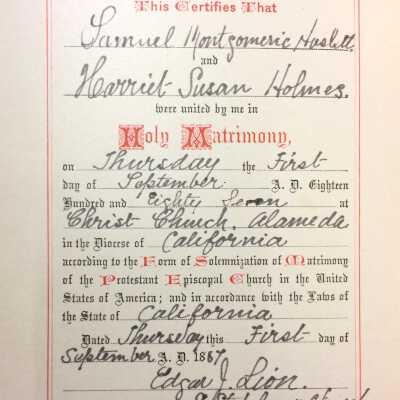 This Certifies That
Samuel Montgomerie Haslett
and
Harriet Susan Holmes.
were united by me in
Holy Matrimony,
on Thursday the First
day of September. A. D. Eighteen
Hundred and Eighty Seven at
Christ Church, Alameda
in the Diocese of California
according to the Form of Solemnization of Matrimony
of the Protestant Episcopal Church in the United
States of America; and in accordance with the Laws of
the State of California
Dated Thursday this First day of
September A. D. 1887.
Edgar J. Lion.